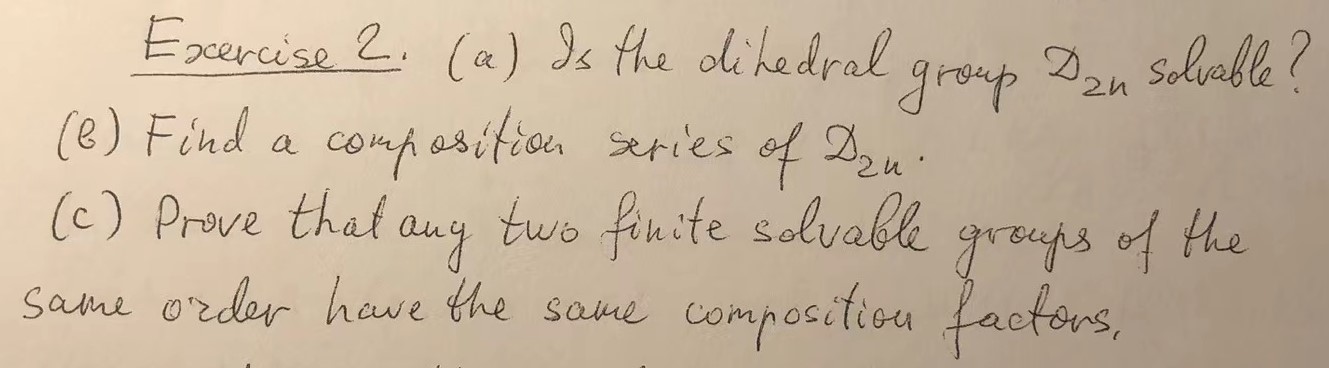 Exercise 2. (a) Is the dihedral group D₂ₙ solvable?
(b) Find a composition series of D₂ₙ.
(c) Prove that any two finite solvable groups of the
same order have the same composition factors.